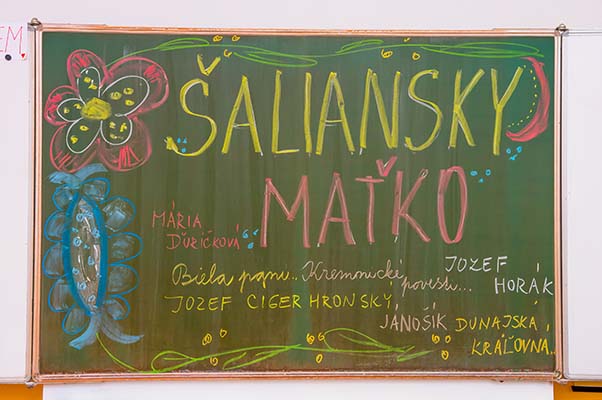 EM
ŠALIANSKY
MAŤKO
MÁRIA
ĎURÍČKOVÁ
Biela pani.. Kremnické povesti...
JOZEF
HORÁK
JOZEF CIGER HRONSKÝ
JÁNOŠÍK DUNAJSKÁ
KRÁĽOVNA..